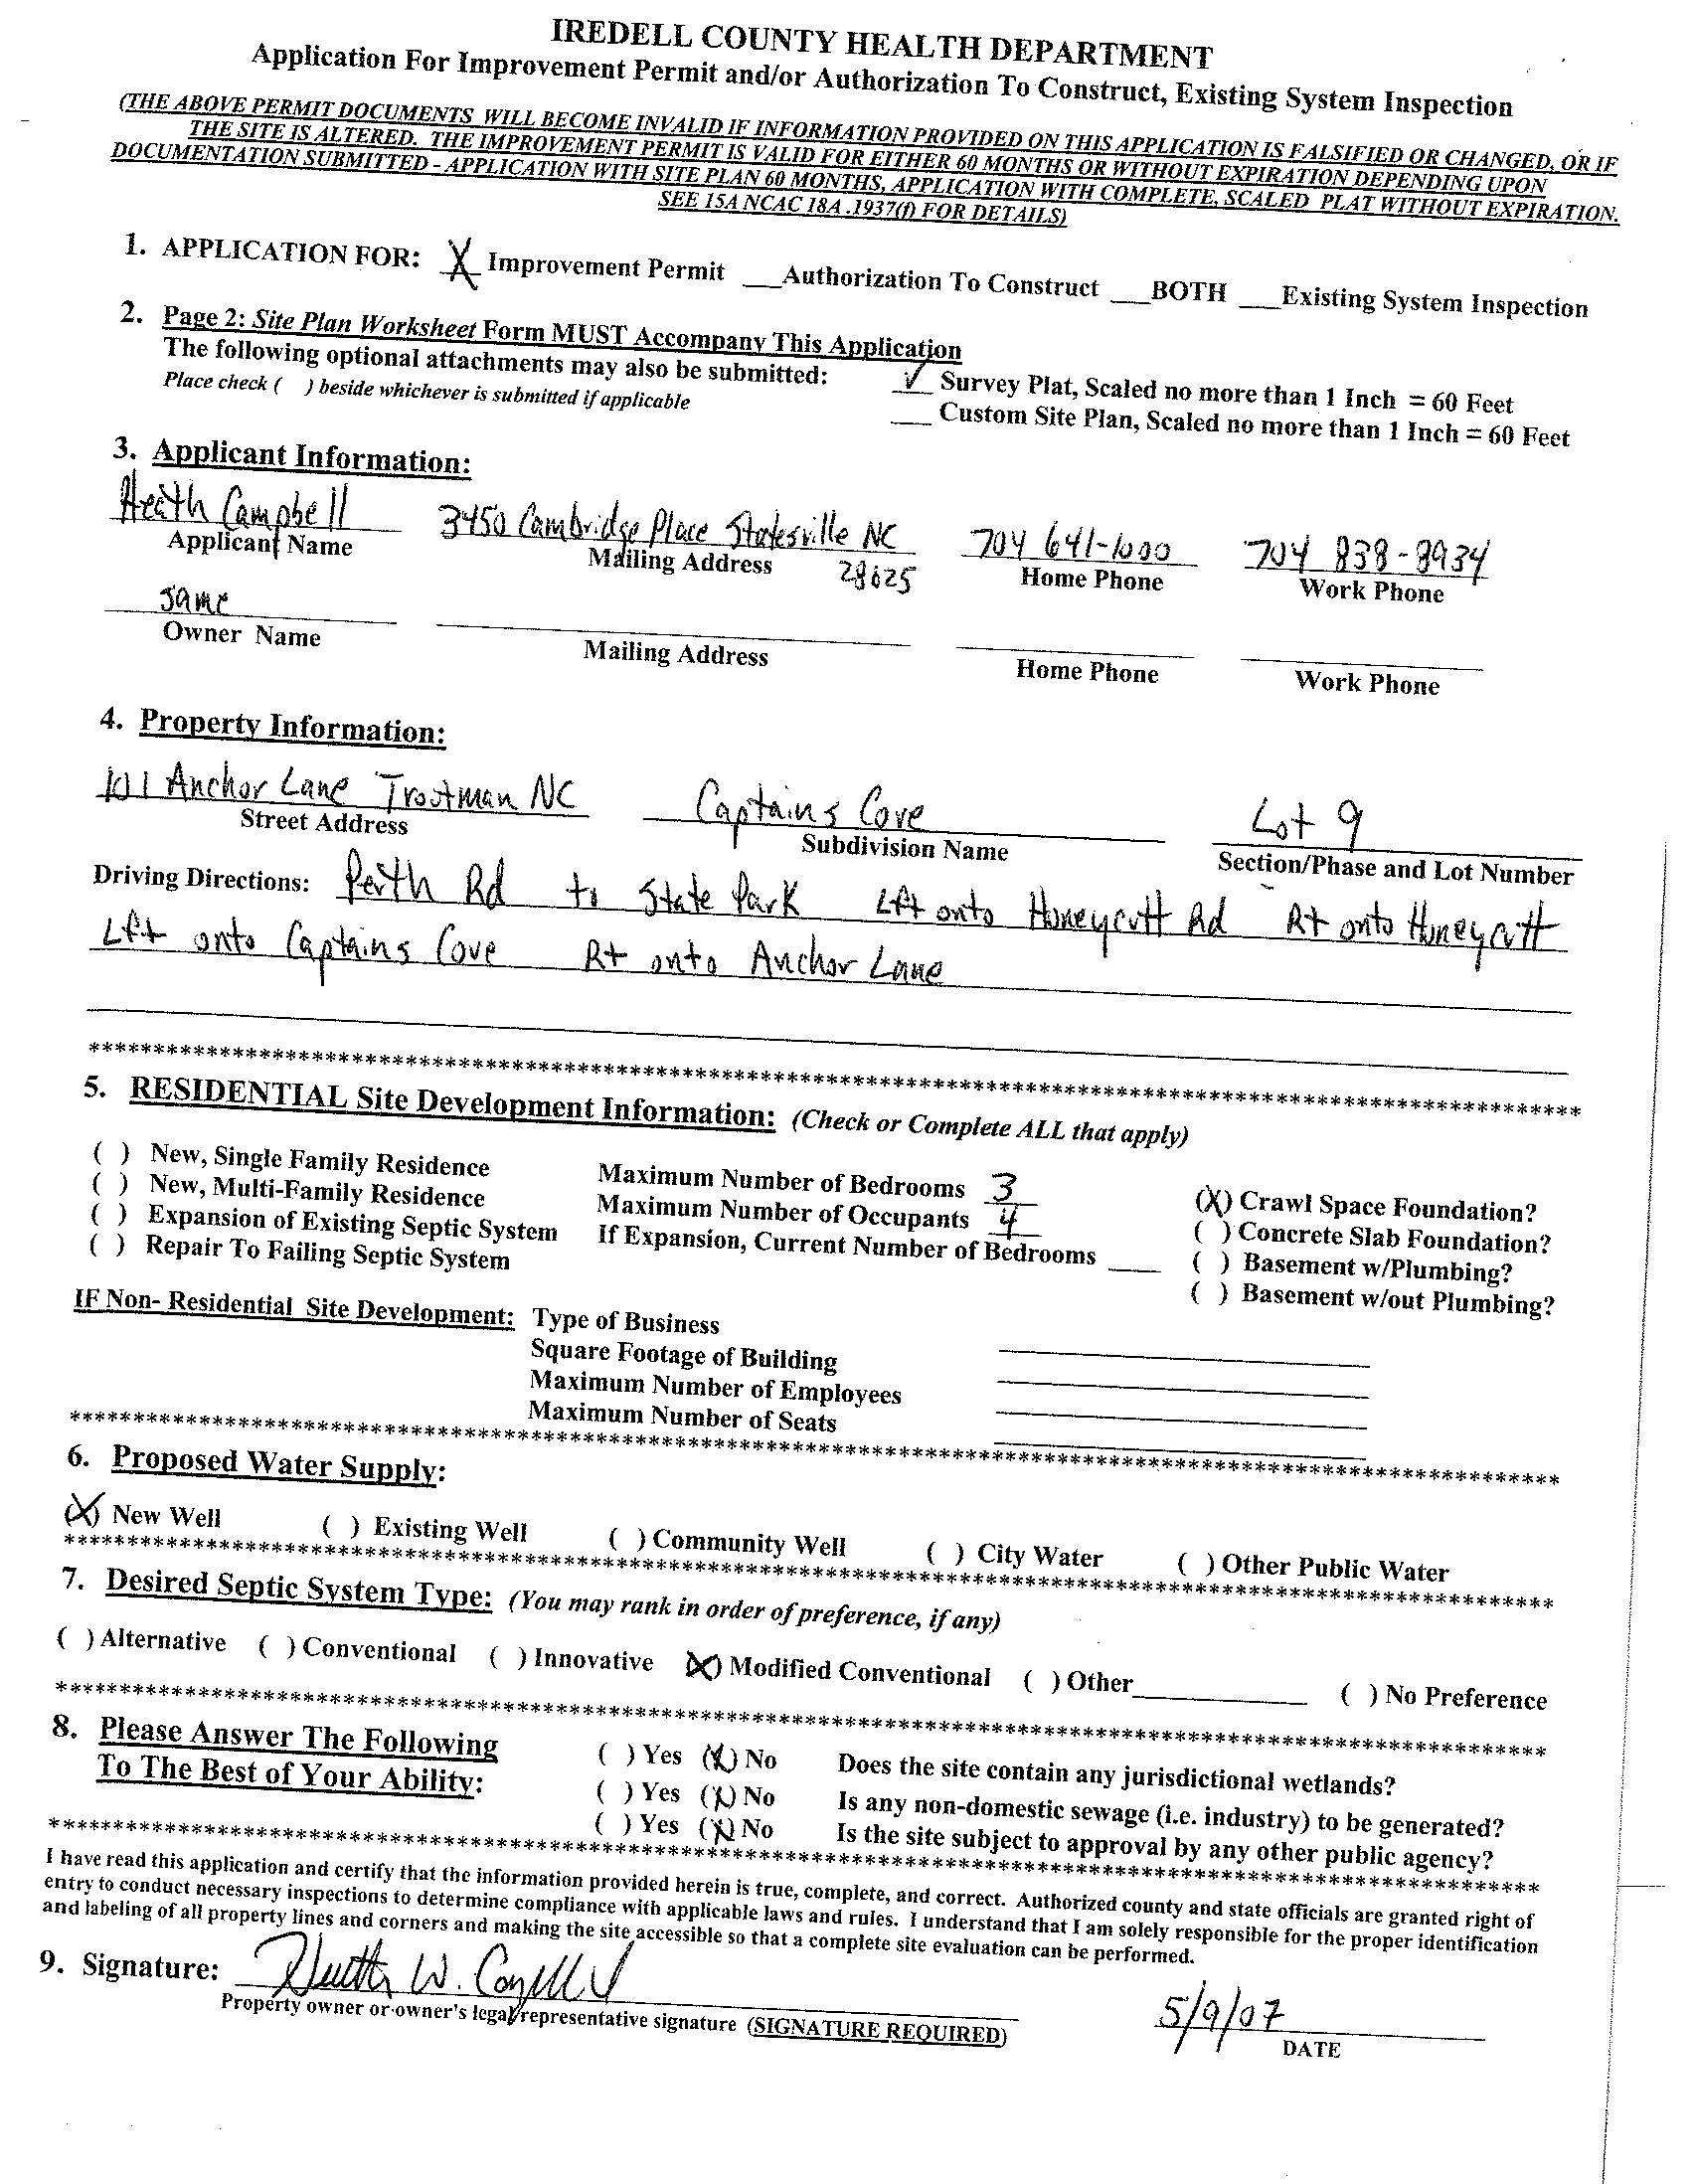 IREDELL COUNTY HEALTH DEPARTMENT
Application For Improvement Permit and/or Authorization To Construct, Existing System Inspection
(THE ABOVE PERMIT DOCUMENTS WILL BECOME INVALID IF INFORMATION PROVIDED ON THIS APPLICATION IS FALSIFIED OR CHANGED, OR IF
THE SITE IS ALTERED. THE IMPROVEMENT PERMIT IS VALID FOR EITHER 60 MONTHS OR WITHOUT EXPIRATION DEPENDING UPON
DOCUMENTATION SUBMITTED - APPLICATION WITH SITE PLAN 60 MONTHS, APPLICATION WITH COMPLETE, SCALED PLAT WITHOUT EXPIRATION.
SEE 15A NCAC 18A .1937(f) FOR DETAILS)
1. APPLICATION FOR: X Improvement Permit ___Authorization To Construct ___BOTH ___Existing System Inspection
2. Page 2: Site Plan Worksheet Form MUST Accompany This Application
The following optional attachments may also be submitted: ✓ Survey Plat, Scaled no more than 1 Inch = 60 Feet
Place check ( ) beside whichever is submitted if applicable ___ Custom Site Plan, Scaled no more than 1 Inch = 60 Feet
3. Applicant Information:
Heath Campbell 3450 Cambridge Place Statesville NC 704 641-1000 704 838-8934
Applicant Name Mailing Address 28625 Home Phone Work Phone
same
Owner Name Mailing Address Home Phone Work Phone
4. Property Information:
101 Anchor Lane Troutman NC Captains Cove Lot 9
Street Address Subdivision Name Section/Phase and Lot Number
Driving Directions: Perth Rd to State Park Lft onto Honeycutt Rd Rt onto Honeycutt
Lft onto Captains Cove Rt onto Anchor Lane
5. RESIDENTIAL Site Development Information: (Check or Complete ALL that apply)
( ) New, Single Family Residence Maximum Number of Bedrooms 3 (X) Crawl Space Foundation?
( ) New, Multi-Family Residence Maximum Number of Occupants 4 ( ) Concrete Slab Foundation?
( ) Expansion of Existing Septic System If Expansion, Current Number of Bedrooms ____ ( ) Basement w/Plumbing?
( ) Repair To Failing Septic System ( ) Basement w/out Plumbing?
IF Non- Residential Site Development: Type of Business
Square Footage of Building
Maximum Number of Employees
Maximum Number of Seats
6. Proposed Water Supply:
(X) New Well ( ) Existing Well ( ) Community Well ( ) City Water ( ) Other Public Water
7. Desired Septic System Type: (You may rank in order of preference, if any)
( ) Alternative ( ) Conventional ( ) Innovative (X) Modified Conventional ( ) Other__________ ( ) No Preference
8. Please Answer The Following ( ) Yes (X) No Does the site contain any jurisdictional wetlands?
To The Best of Your Ability: ( ) Yes (X) No Is any non-domestic sewage (i.e. industry) to be generated?
( ) Yes (X) No Is the site subject to approval by any other public agency?
I have read this application and certify that the information provided herein is true, complete, and correct. Authorized county and state officials are granted right of
entry to conduct necessary inspections to determine compliance with applicable laws and rules. I understand that I am solely responsible for the proper identification
and labeling of all property lines and corners and making the site accessible so that a complete site evaluation can be performed.
9. Signature: Heath W. Campbell 5/9/07
Property owner or owner's legal representative signature (SIGNATURE REQUIRED) DATE